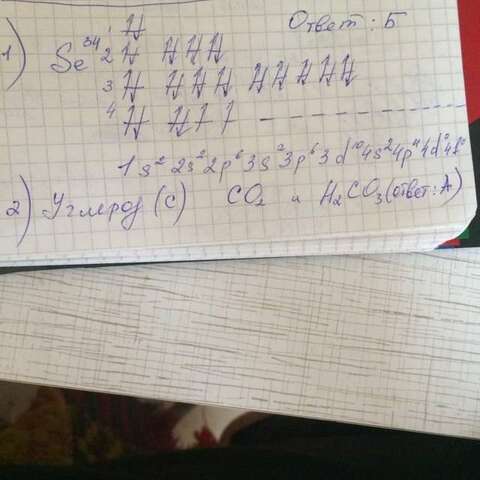 Ответ: Б
1) Se³⁴ 1
2
3
4 — — — — — — — — — — — —
1s² 2s² 2p⁶ 3s² 3p⁶ 3d¹⁰ 4s² 4p⁴ 4d⁰ 4f⁰
2) Углерод (С) CO₂ и H₂CO₃ (ответ: А)